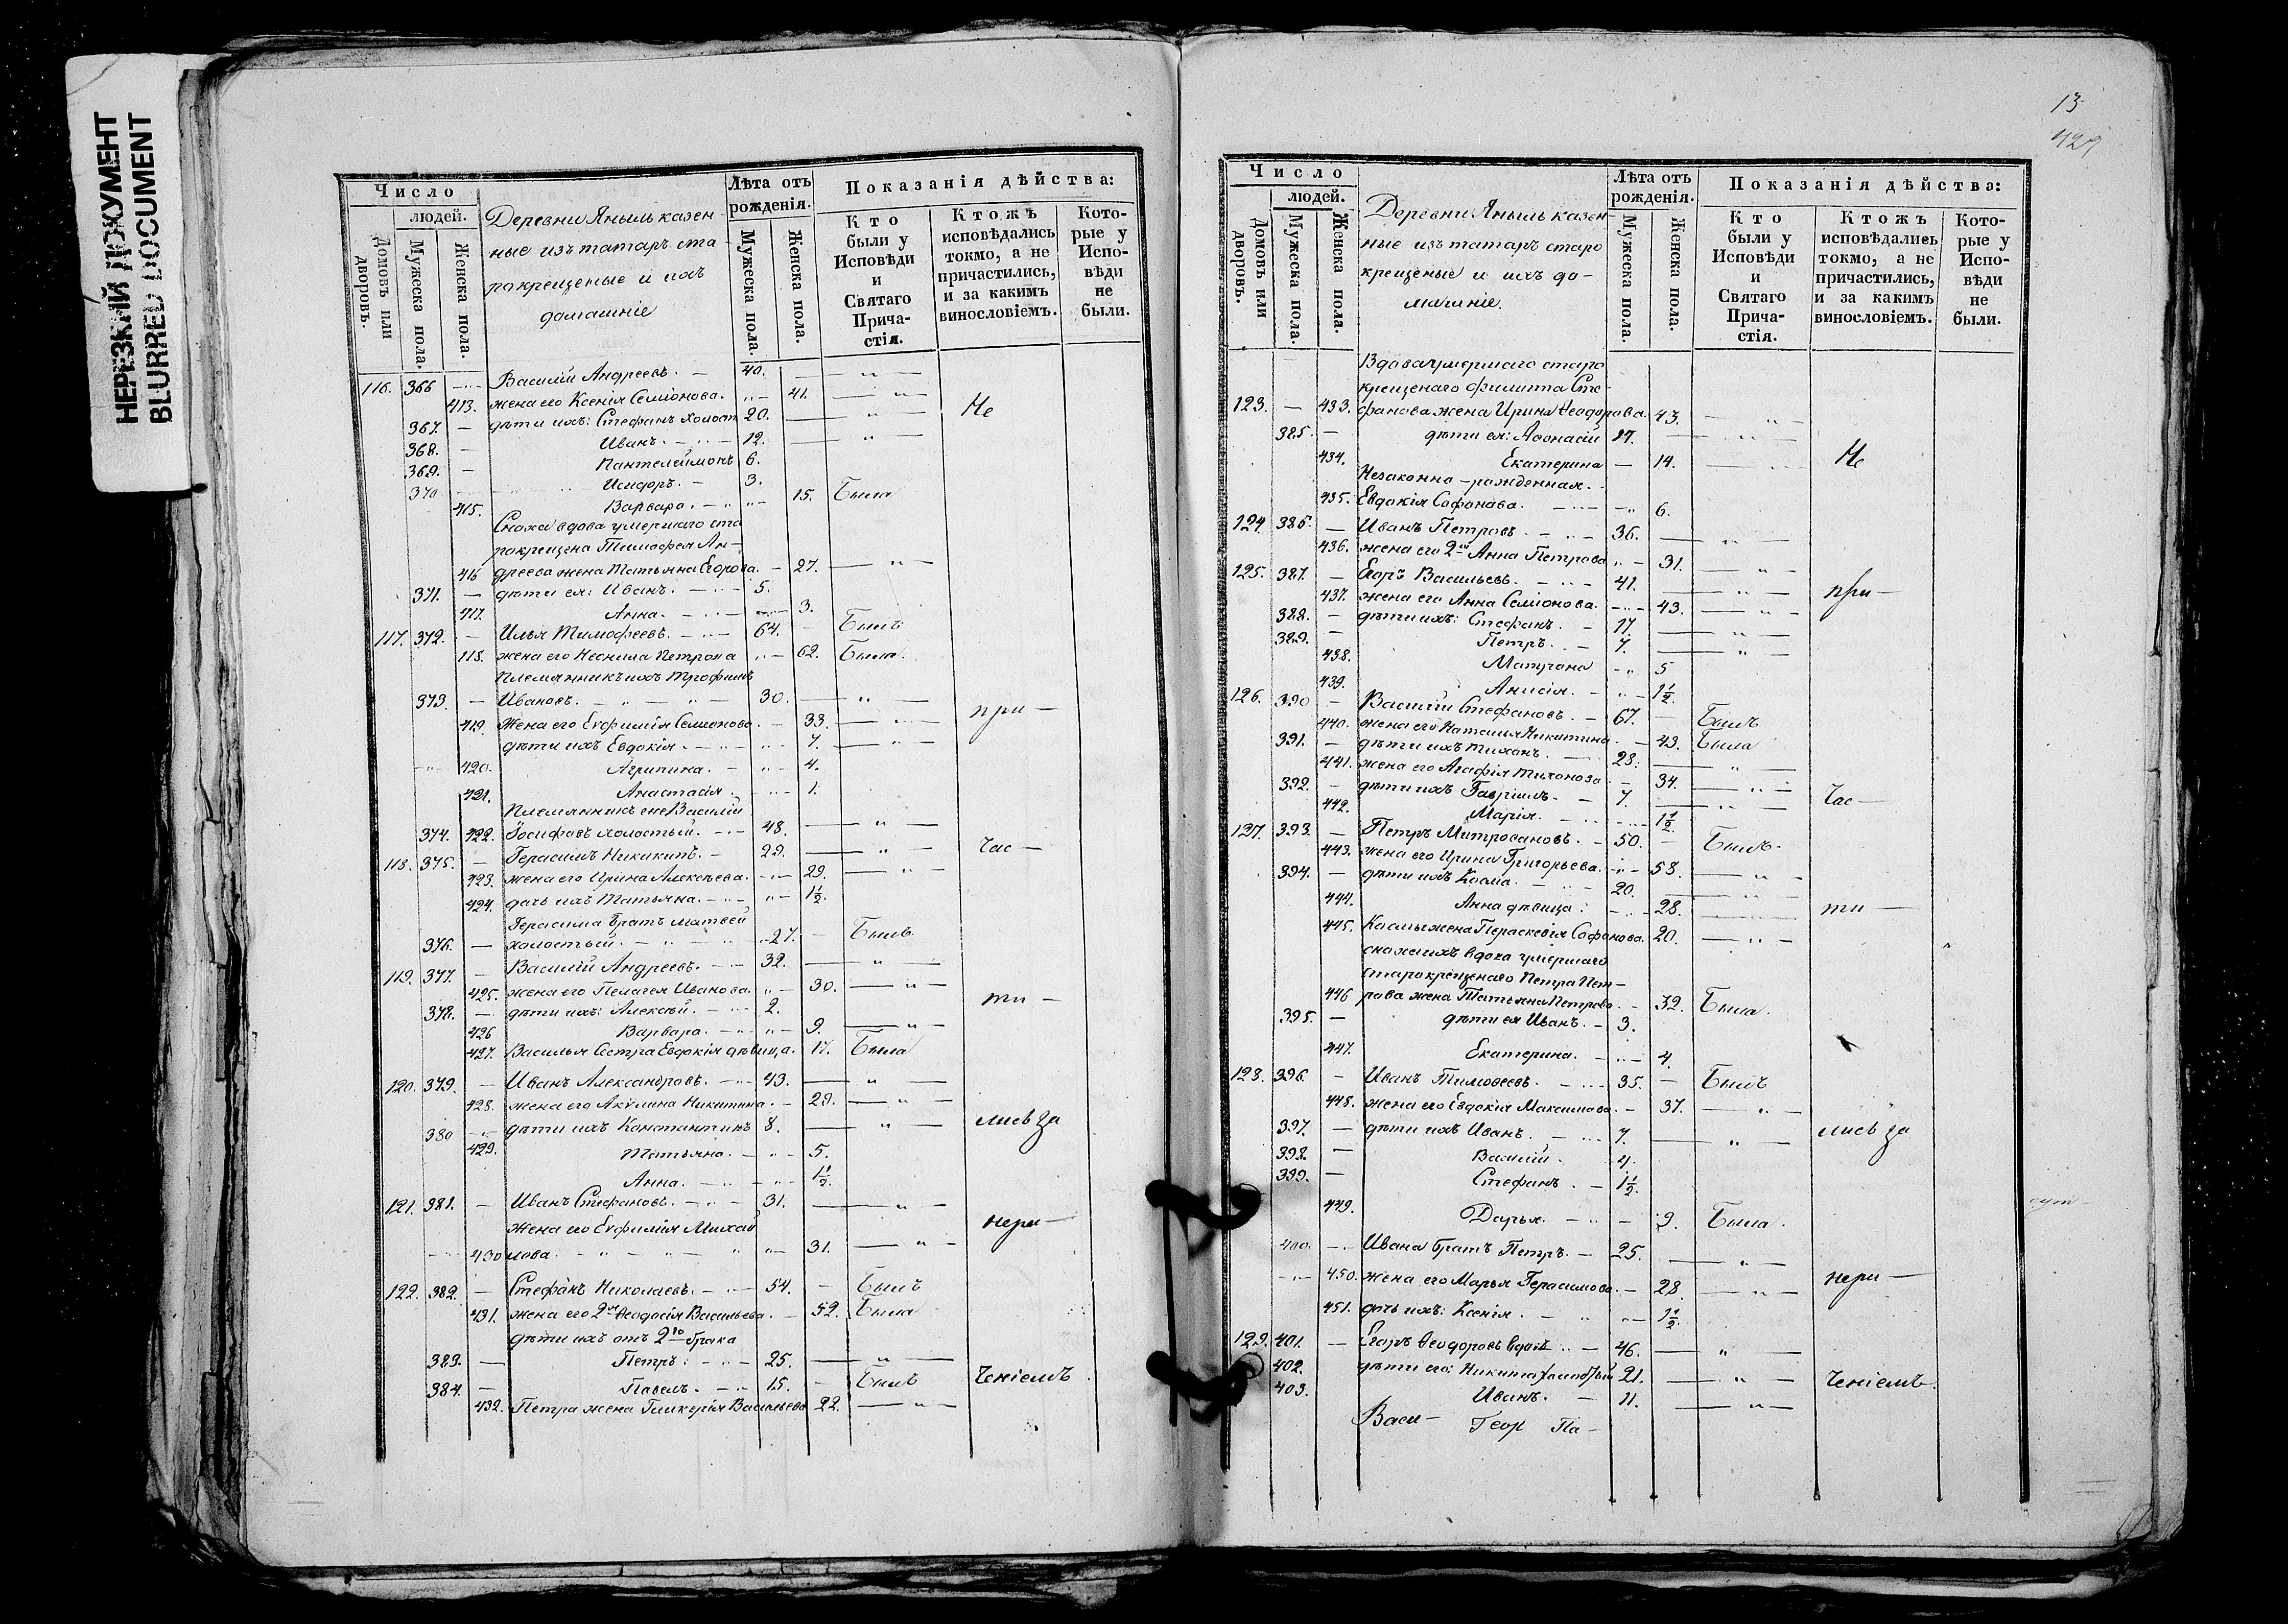 НЕРЕЗКИЙ ДОКУМЕНТ
BLURRED DOCUMENT
Число
людей.
Домовъ или дворовъ.
Мужеска пола.
Женска пола.
Деревни Янылъ казен-
ные изъ татаръ ста-
рокрещеные и ихъ
домашніе
Лѣта отъ рожденія.
Мужеска пола.
Женска пола.
Показанія дѣйства:
Кто были у Исповѣди и Святаго Прича-стія.
Ктожъ исповѣдались токмо, а не причастились, и за какимъ винословіемъ.
Кото-рые у Испо-вѣди не были.
116. 366 Василій Андреевъ. 40.
413. жена его Ксенія Семіонова. 41.
367. дѣти ихъ: Стефанъ холост 20. Не
368. Иванъ. 12.
369. Пантелеймонъ 6.
370 Исидоръ. 3.
415. Варвара. 15. Была
Сноха вдова умершаго ста
рокрещена Тимофея Ан-
416 дреева жена Татьяна Егорова. 27.
371. дѣти ея: Иванъ. 5.
417. Анна. 3.
117. 372. Илья Тимофеевъ. 64. Былъ
118. жена его Неонила Петрова 62. Была.
Племянникъ ихъ Трофимъ
373. Ивановъ. 30. при-
419. Жена его Евфимія Семіонова. 33.
дѣти ихъ Евдокія. 7.
420. Агрипина. 4.
421. Анастасія. 1.
Племянникъ Василій
374. 422. Іосифовъ холостый. 48.
118. 375. Герасимъ Никикинъ. 29. час-
423. жена его Ирина Алексѣева. 29.
424. дочь ихъ Татьяна. 1½.
Герасима братъ Матвей
376. холостый. 27. Былъ
119. 377. Василій Андреевъ. 32.
425. жена его Пелагея Иванова. 30. ти-
378. дѣти ихъ: Алексѣй. 2.
426 Варвара. 9.
427. Василья Сестра Евдокія дѣвица. 17. Была
120. 379. Иванъ Александровъ. 43.
428. жена его Акулина Никитина. 29.
380 дѣти ихъ Константинъ 8. лись за
429. Татьяна. 5.
Анна. 1½.
121. 381. Иванъ Стефановъ. 31.
Жена его Евфимія Михай нери-
430 лова. 31.
122. 382. Стефанъ Николаевъ. 54. Былъ
431. жена его 2я Ѳеодосія Васильева. 52. Была
дѣти ихъ отъ 2го брака
383. Петръ. 25.
384. Павелъ. 15. Былъ ченіемъ
432. Петра жена Гликерія Васильева 22.
13
429
Число
людей.
Домовъ или дворовъ.
Мужеска пола.
Женска пола.
Деревни Янылъ казен-
ные изъ татаръ старо
крещеные и ихъ до-
машніе.
Лѣта отъ рожденія.
Мужеска пола.
Женска пола.
Показанія дѣйства:
Кто были у Исповѣди и Святаго Прича-стія.
Ктожъ исповѣдались токмо, а не причастились, и за какимъ винословіемъ.
Кото-рые у Испо-вѣди не были.
Вдова умершаго старо
крещенаго Филиппа Сте-
123. 433. фанова жена Ирина Ѳеодорова. 43.
385. дѣти ея: Аѳонасій 17.
434. Екатерина 14. Не
Незаконно-рожденная.
435. Евдокія Софонова. 6.
124 386. Иванъ Петровъ. 36.
436. жена его 2я Анна Петрова 31.
125. 387. Егоръ Васильевъ. 41. при-
437. жена его Анна Семіонова. 43.
388. дѣти ихъ: Стефанъ. 17
389. Петръ. 7.
438. Матрона 5
439. Анисія. 1½.
126. 390 Василій Стефановъ. 67. Былъ
440. жена его Наталья Никитина. 43. Была
391. дѣти ихъ Тихонъ. 28.
441. жена его Агафія Тихонова 34.
392. дѣти ихъ Гавріилъ. 7. час-
442. Марія. 1½.
127. 393. Петръ Митрофановъ. 50. Былъ.
443. жена его Ирина Григорьева. 58.
394. дѣти ихъ Косма. 20.
444. Анна дѣвица. 28. ти-
445. Космы жена Параскевія Софонова. 20.
сноха ихъ вдова умершаго
старокрещенаго Петра Пет-
446 рова жена Татьяна Петрова. 32. Была.
395. дѣти ея Иванъ. 3.
447. Екатерина. 4.
128. 396. Иванъ Тимоѳеевъ. 35. Былъ
448. жена его Евдокія Максимова. 37.
397. дѣти ихъ Иванъ. 7. лись за
398. Василій. 4.
399. Стефанъ. 1½.
449. Дарья. 9. Была.
400. Ивана братъ Петръ. 25.
450. жена его Марья Герасимова. 28. нери-
451. дочь ихъ: Ксенія. 1½.
129. 401. Егоръ Ѳеодоровъ вдовъ 46.
402. дѣти его: Никита холостый 21. ченіемъ.
403. Иванъ. 11.
Васи- Геор Па-